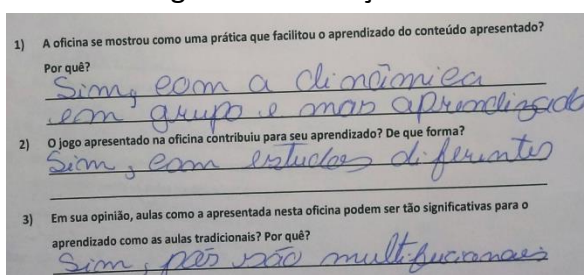 1) A oficina se mostrou como uma prática que facilitou o aprendizado do conteúdo apresentado?
Por quê?
Sim, com a dinâmica
em grupo e mais aprendizado
2) O jogo apresentado na oficina contribuiu para seu aprendizado? De que forma?
Sim, com estudos diferentes
3) Em sua opinião, aulas como a apresentada nesta oficina podem ser tão significativas para o
aprendizado como as aulas tradicionais? Por quê?
Sim, pois são